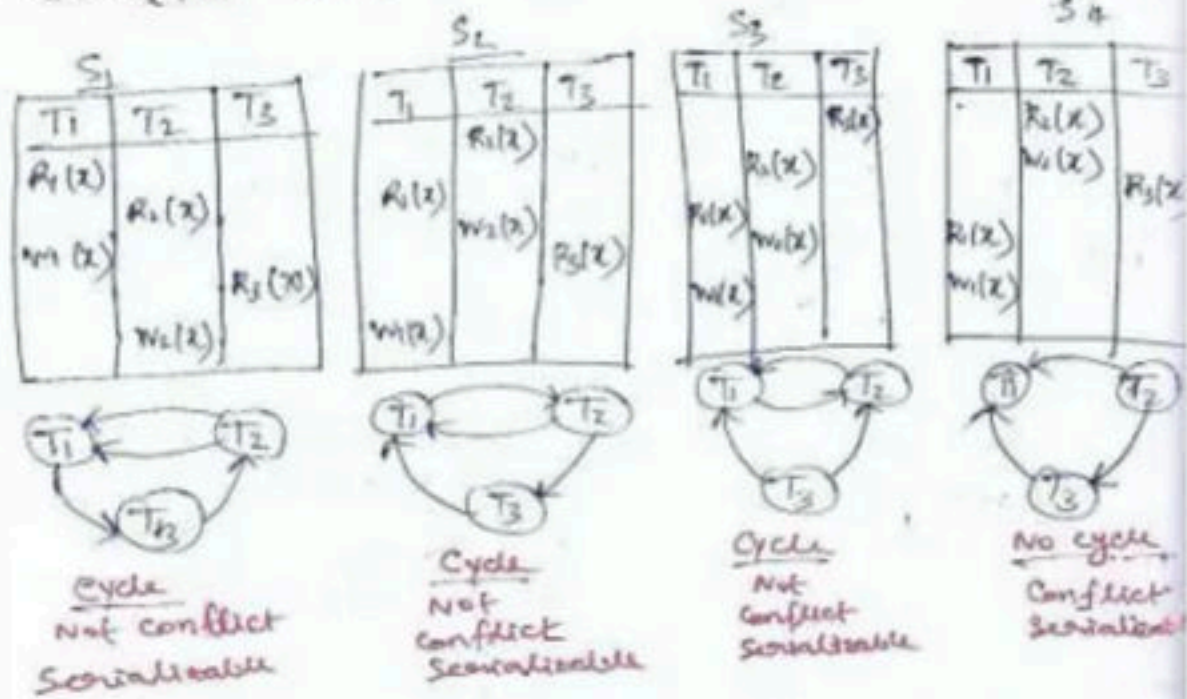 S1
T1 T2 T3
R1(x)
R2(x)
W1(x)
R3(x)
W2(x)
T1 T2
T3
Cycle
Not conflict
Serializable
S2
T1 T2 T3
R2(x)
R1(x)
W2(x)
R3(x)
W1(x)
T1 T2
T3
Cycle
Not
Conflict
Serializable
S3
T1 T2 T3
R3(x)
R2(x)
R1(x)
W2(x)
W1(x)
T1 T2
T3
Cycle
Not
Conflict
Serializable
S4
T1 T2 T3
R2(x)
W2(x)
R3(x
R1(x)
W1(x)
T1 T2
T3
No cycle
Conflict